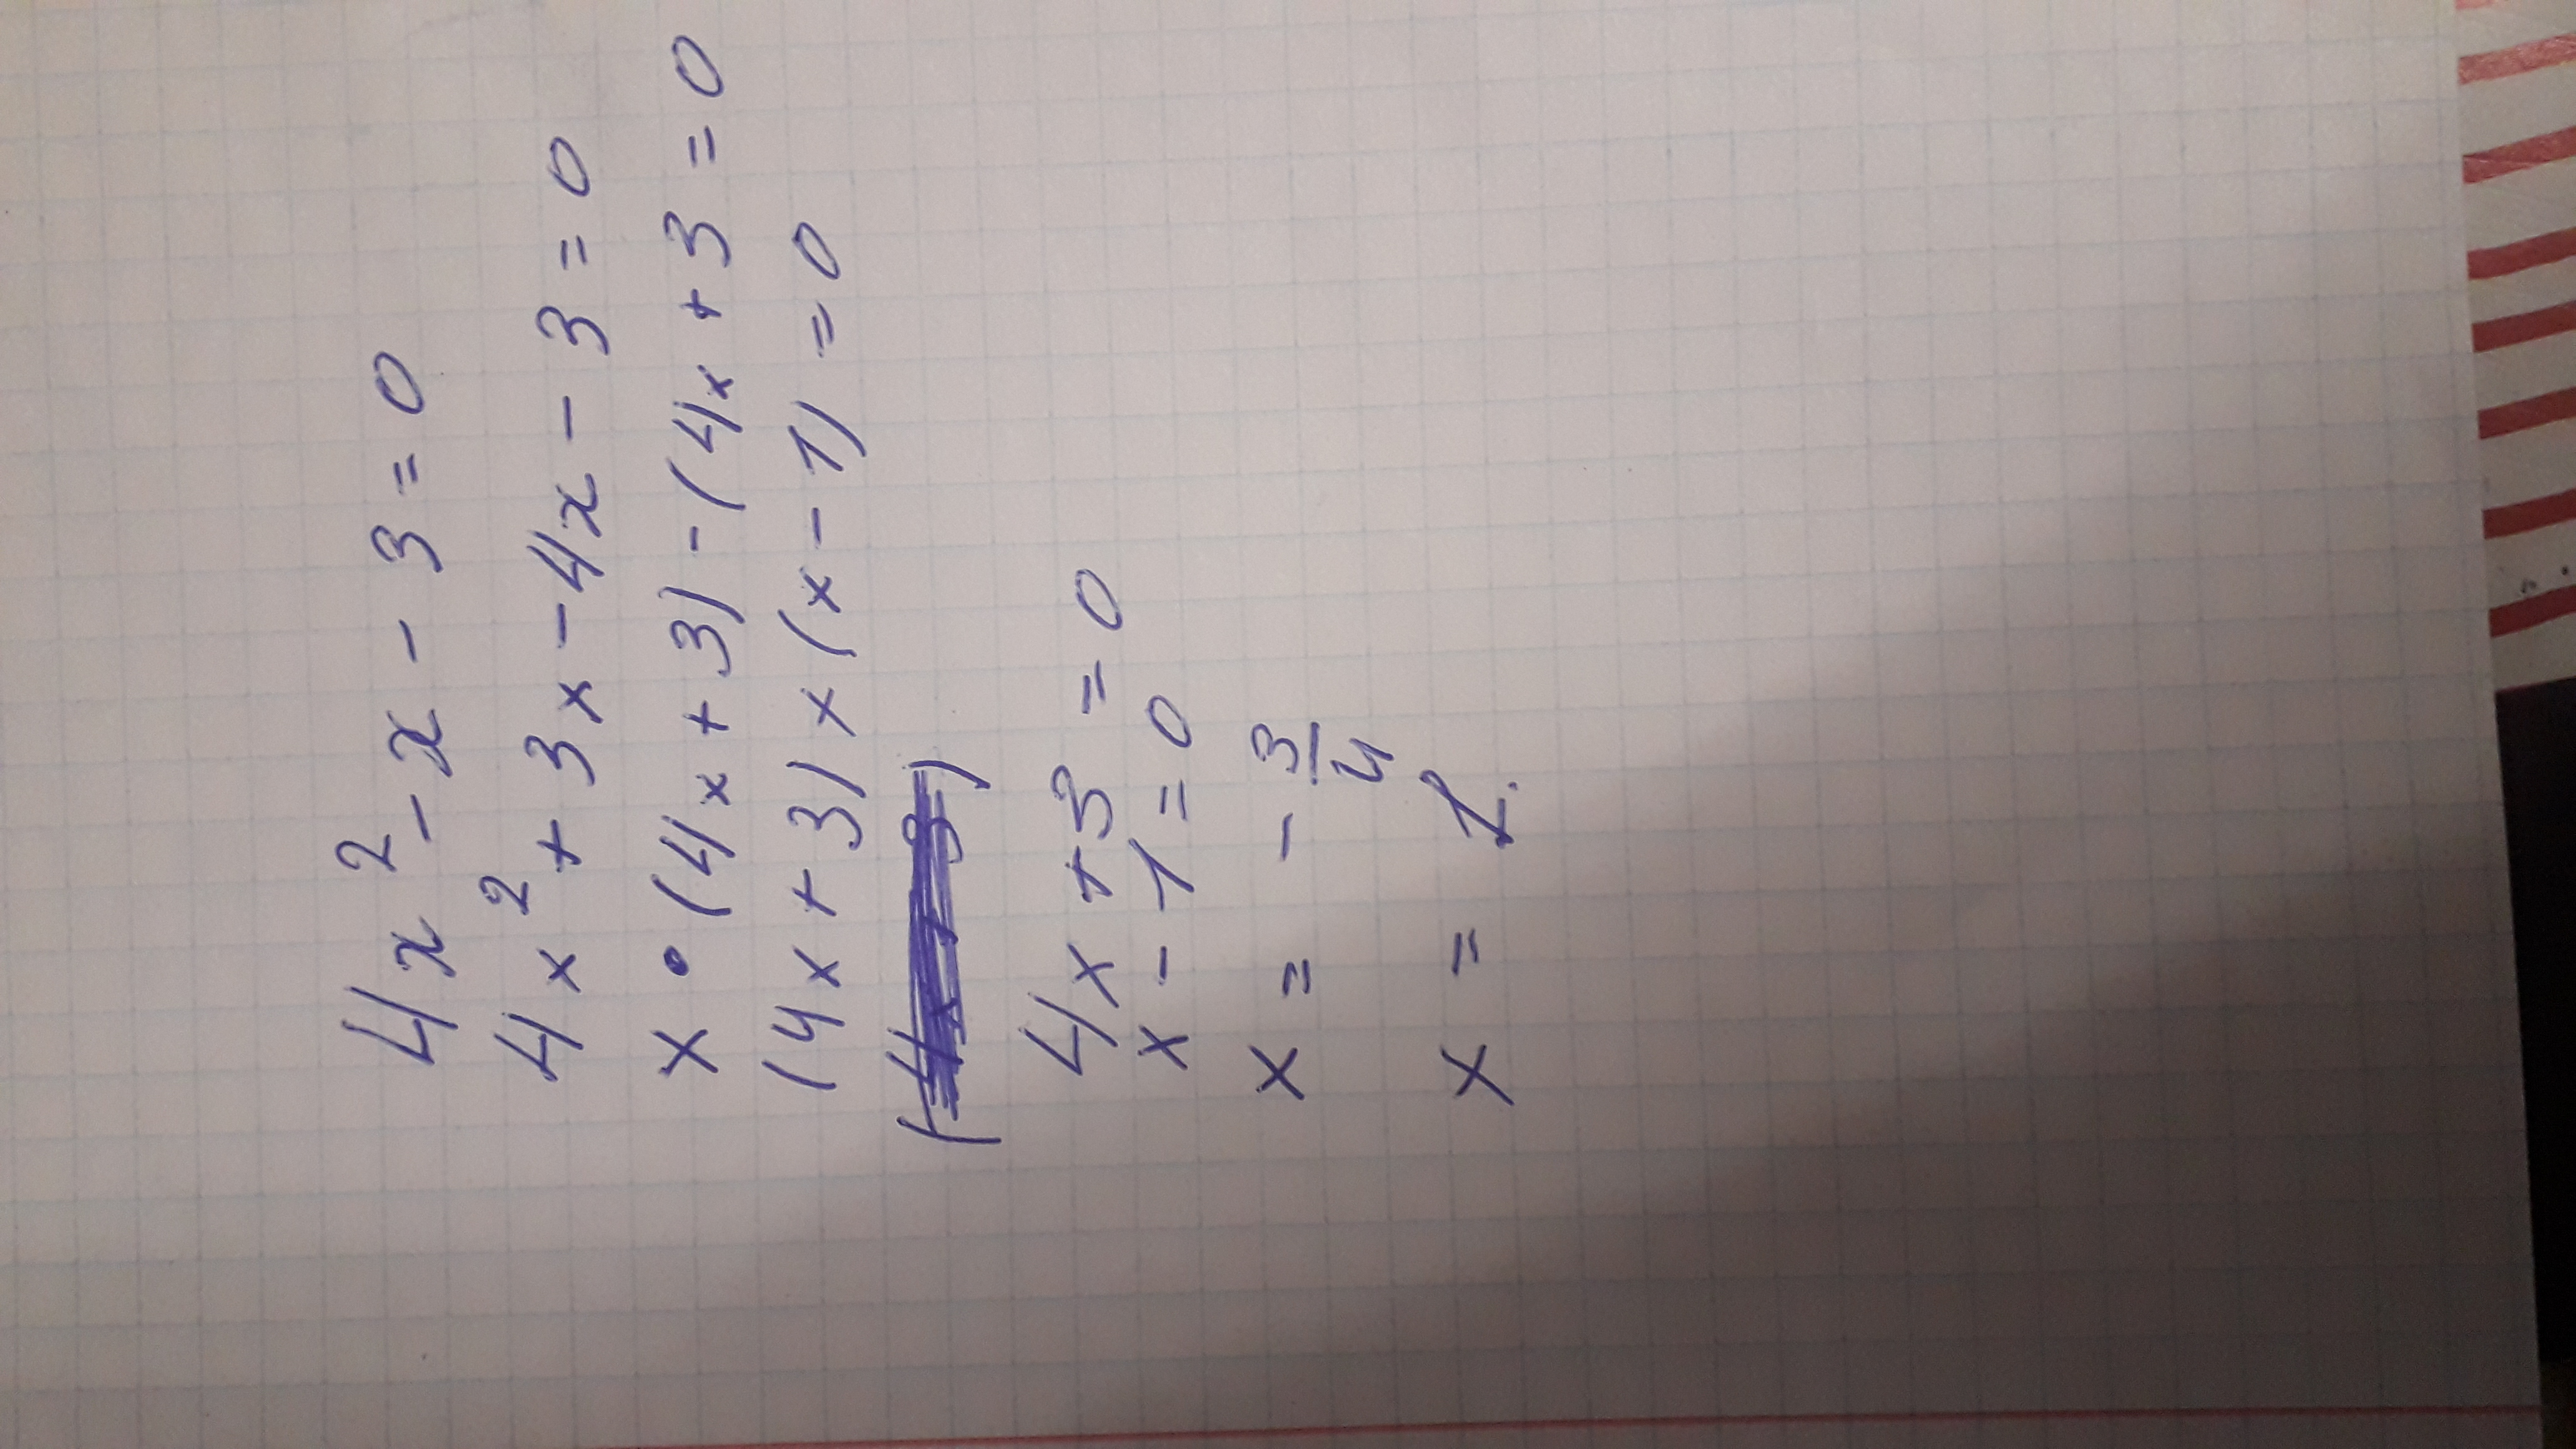 4x² - x - 3 = 0
4x² + 3x - 4x - 3 = 0
x • (4x + 3) - (4x + 3 = 0
(4x + 3) x (x - 1) = 0
4x + 3 = 0
x - 1 = 0
x = - 3/4
x = 1.